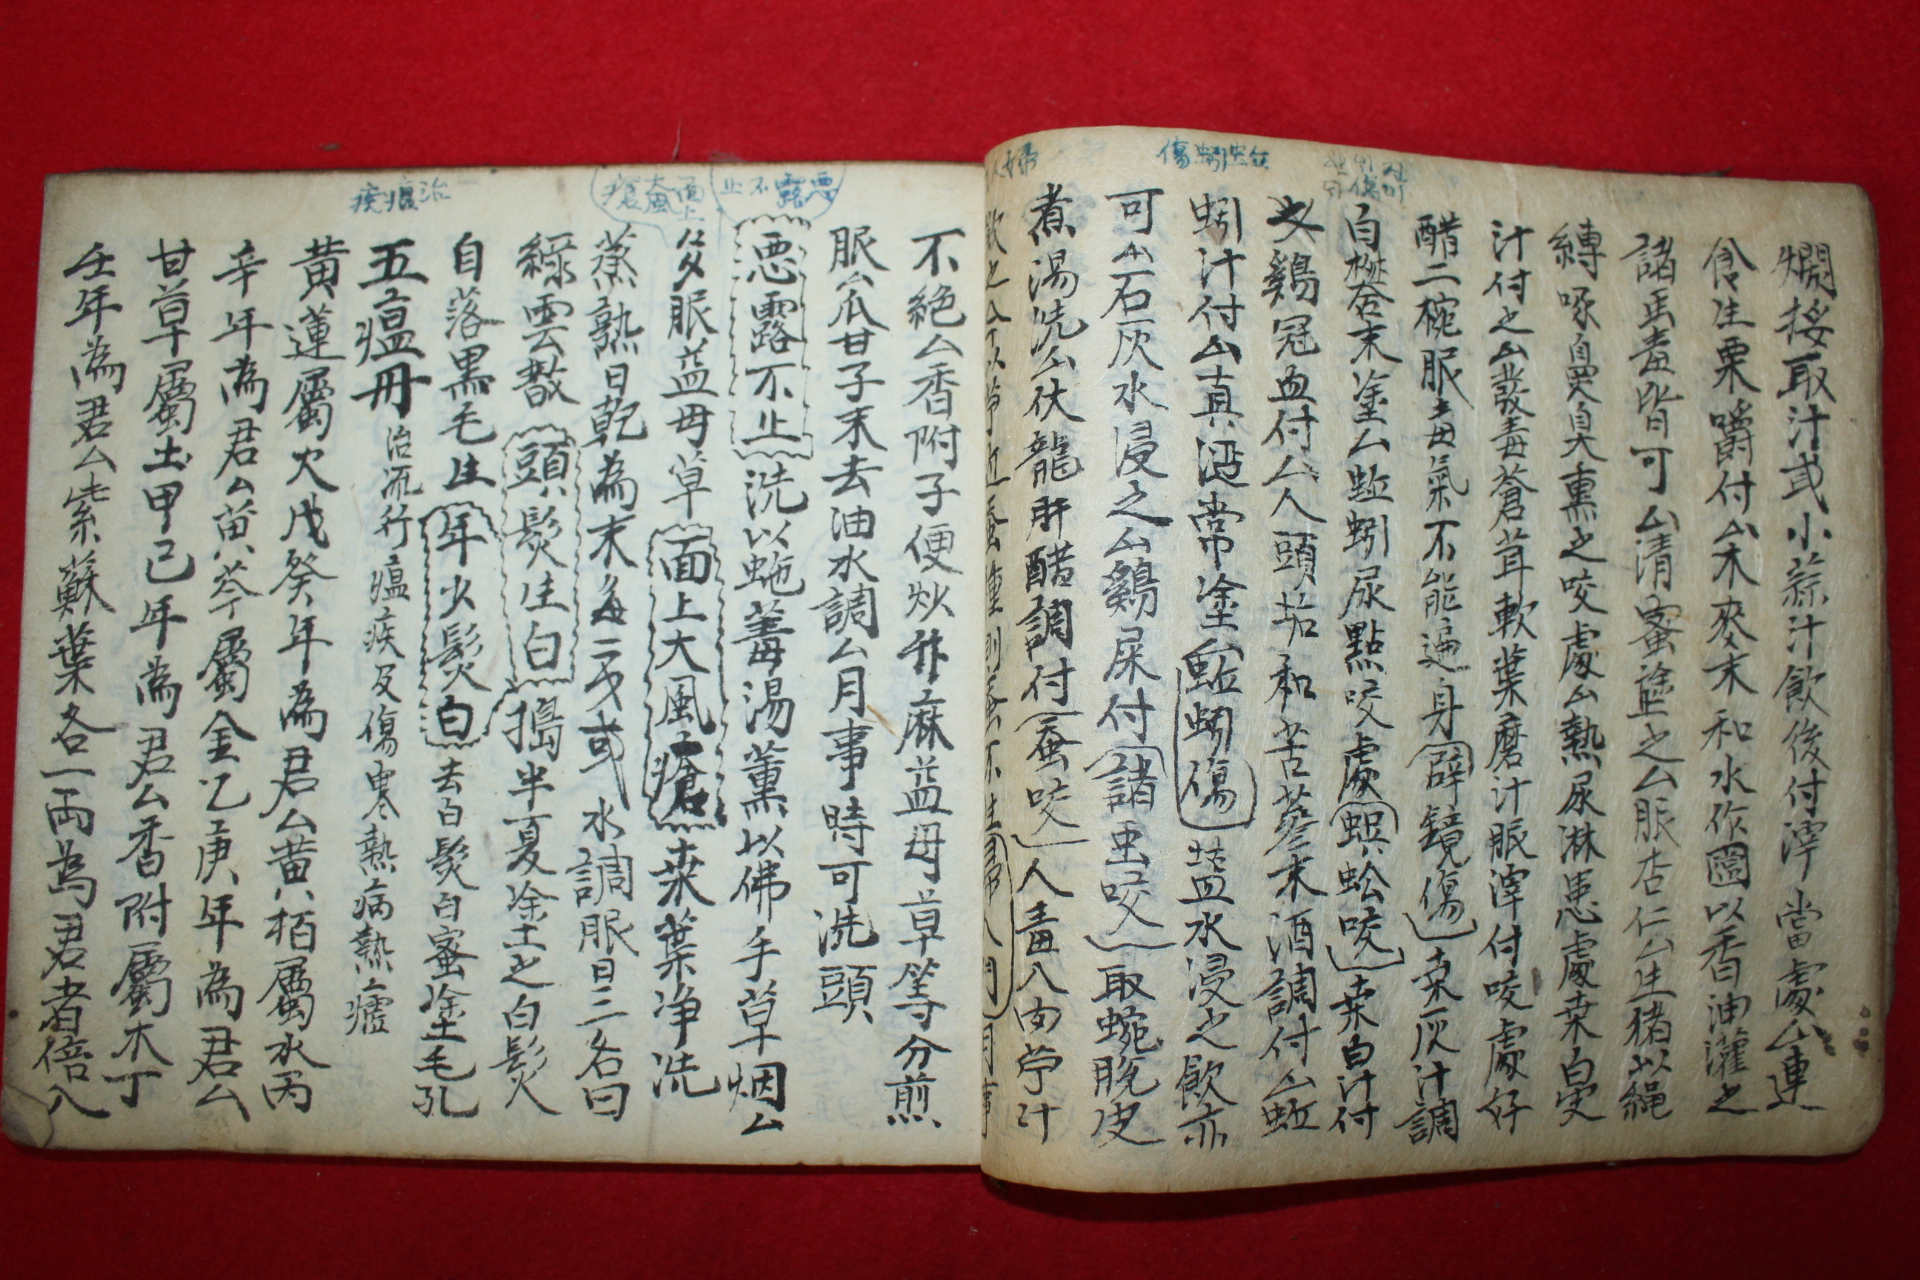 爛挼取汁或小蒜汁飲後付滓當處厶連
食生栗嚼付厶米麥末和水作圈以香油灌之
諸虫毒皆可厶清蜜塗之厶服杏仁厶生猪以繩
縛啄自臭熏之咬處厶熱尿淋患處桒白
汁付之厶發毒蒼茸軟葉磨汁服滓付咬處好
醋二椀服毒氣不能遍身 壁鏡傷 桒灰汁調
白礬末塗厶蚯蚓尿點咬處 蜈蚣咬 桒白汁付
厶鷄冠血付厶人頭垢和苦蔘末酒調付厶蚯
蚓汁付厶真酒常塗 蚯蚓傷 塩水浸之飮亦
可厶石灰水浸之厶鷄屎付 諸虫咬 取蜿脫皮
煮湯洗厶伏龍肝醋調付 蚕咬 人毒入肉苧汁
不絕厶香附子便炒升麻益母草等分煎
服厶瓜甘子末去油水調厶月事時可洗頭
惡露不止 洗以虵薑湯薰以佛手草烟厶
多服益母草 面上大風瘡 桒葉净洗
蒸熟日乾為末每二戔或水調服日三名曰
綠雲散 頭髮生白 搗半夏塗土之白髮
自落黒毛生 年少髮白 去白髮白蜜塗毛孔
五瘟丹 治流行瘟疾及傷寒熱病熱瘧
黃蓮屬火戊癸年為君厶黃柏屬水丙
辛年為君厶黃芩屬金乙庚年為君厶
甘草屬土甲己年為君厶香附屬木丁
壬年為君厶紫蘇葉各一兩為君者倍入
傷蚓蚯
惡露不止
面上大風瘡
治瘟疾